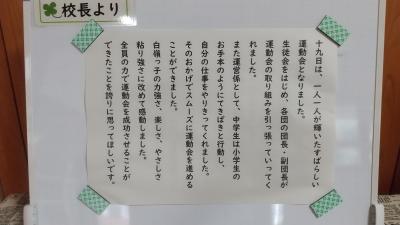 校長より
十九日は、一人一人が輝いたすばらしい
運動会となりました。
生徒会をはじめ、各団の団長・副団長が
運動会の取り組みを引っ張っていってく
れました。
また運営係として、中学生は小学生の
お手本のようにてきぱきと行動し、
自分の仕事をやりきってくれました。
そのおかげでスムーズに運動会を進める
ことができました。
白嶺っ子の力強さ、楽しさ、やさしさ
粘り強さに改めて感動しました。
全員の力で運動会を成功させることが
できたことを誇りに思ってほしいです。